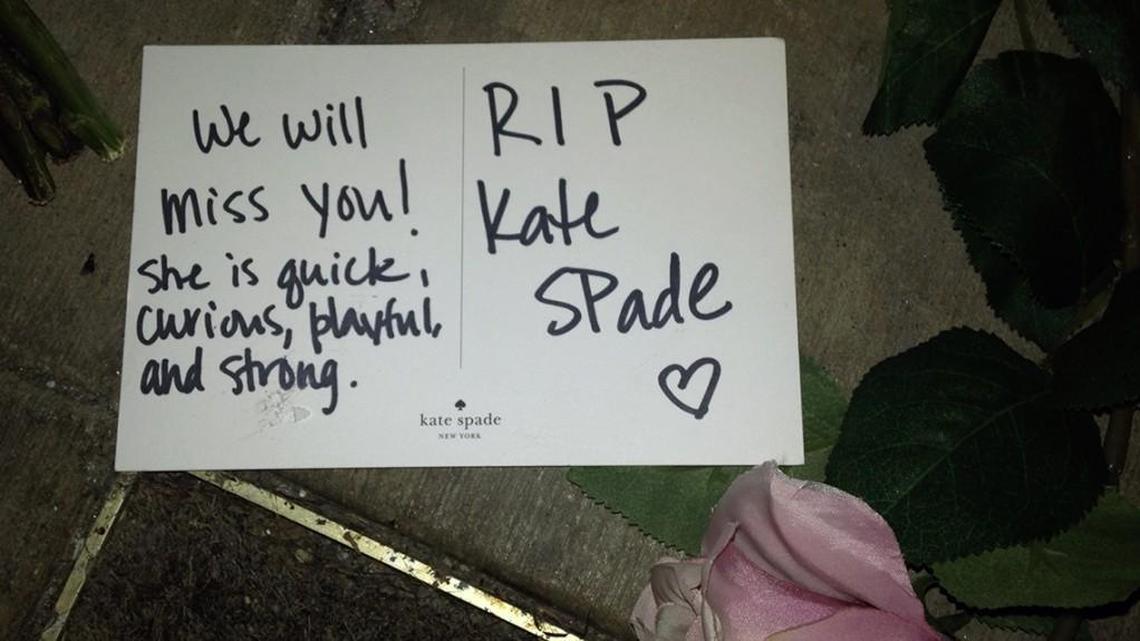 We will
miss you!
She is quick,
curious, playful,
and strong.
RIP
Kate
Spade
kate spade
NEW YORK